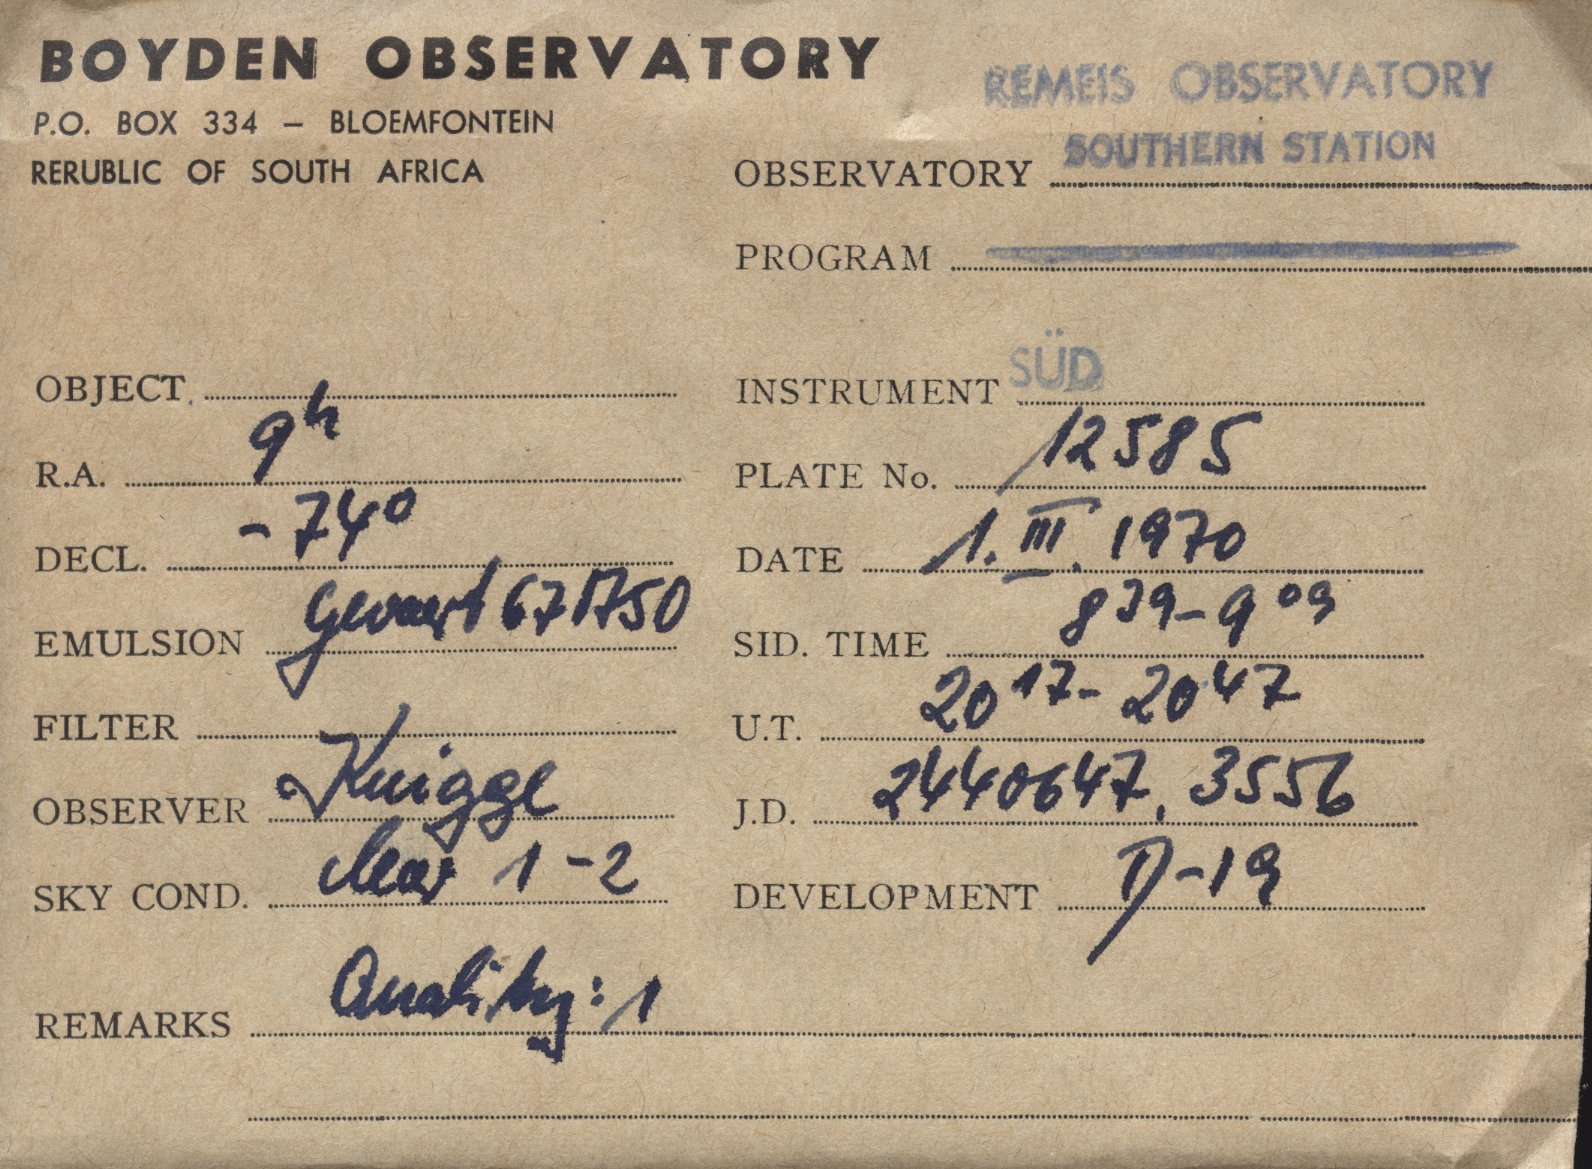 BOYDEN OBSERVATORY
P.O. BOX 334 – BLOEMFONTEIN
RERUBLIC OF SOUTH AFRICA
REMEIS OBSERVATORY
SOUTHERN STATION
OBSERVATORY
PROGRAM
OBJECT
INSTRUMENT SÜD
R.A. 9h
PLATE No. 12585
DECL. -74°
DATE 1. III. 1970
EMULSION Gevaert 67A50
SID. TIME 8 39 - 9 09
FILTER
U.T. 20 17 - 20 47
OBSERVER Knigge
J.D. 2440647.3556
SKY COND. clear 1-2
DEVELOPMENT D-19
REMARKS Quality: 1